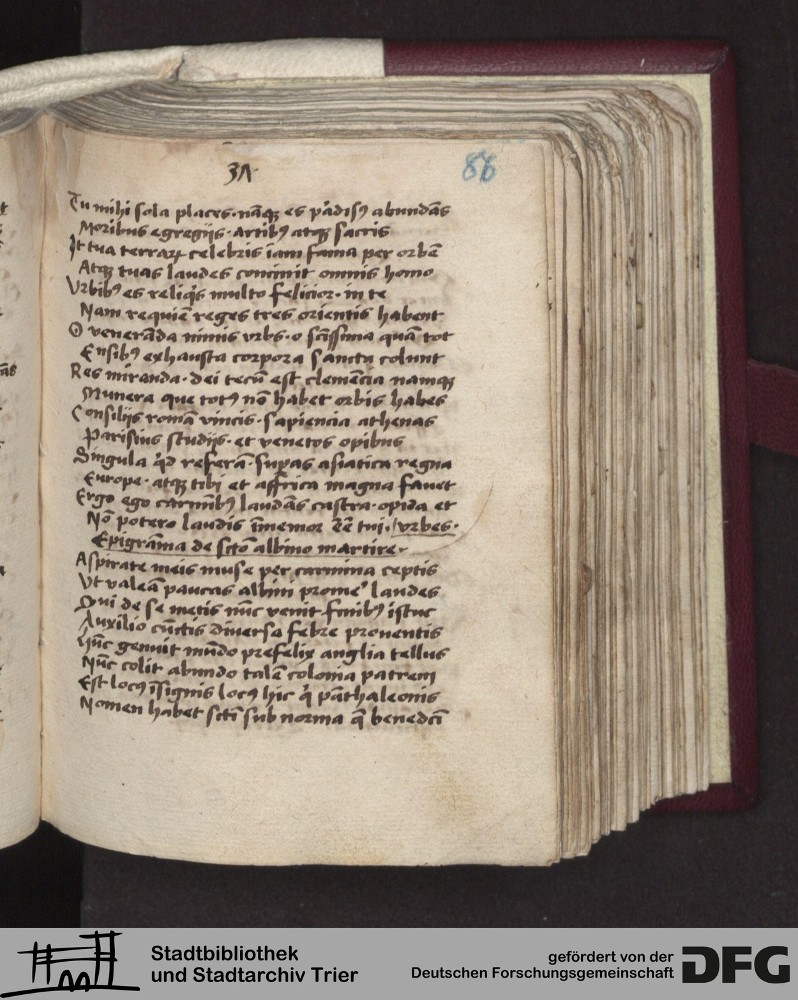 31 86
Tu mihi sola places. nāqꝫ es ꝑadisꝰ abundās
Moribus egregijs. artibꝰ atqꝫ sacris
It tua terrarꝝ celebris iam fama per orbē
Atqꝫ tuas laudes concinit omnis homo
Vrbibꝰ es reliqͥs multo felicior. in te
Nam requiē reges tres orientis habent
O venerāda nimis vrbs. o sc̄issima quā tot
Ensibꝰ exhausta corpora sancta colunt
Res miranda. dei tecū est clemēcia namqꝫ
Munera que totꝰ nō habet orbis habes
Consilijs romā vincis. sapiencia athenas
Parisius studijs. et venetos opibus
Singula qͥd referā. suꝑas asiatica regna
Europe. atqꝫ tibi et affrica magna fauet
Ergo ego carmībꝰ laudās castra. opida et
Nō potero laudis īmemor eē tui. /vrbes.
Epigrāma de sct̄o albino martire.
Aspirate meis muse per carmina ceptis
Vt valeā paucas albini prome͛ laudes
Qui de se metis nūc venit finibꝰ istuc
Auxilio cūctis diuersa febre prouentis
Hūc genuit mūdo prefelix anglia tellus
Nūc colit abundo talē colonia patrem
Est locꝰ īsignis locꝰ hic qͥ pāthaleonis
Nomen habet sct̄i sub norma q̄ bened̄ci
Stadtbibliothek
und Stadtarchiv Trier
gefördert von der
Deutschen Forschungsgemeinschaft
DFG